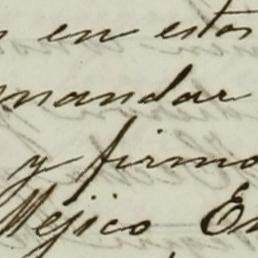 en estos
mandar
y firmo
Méjico, En